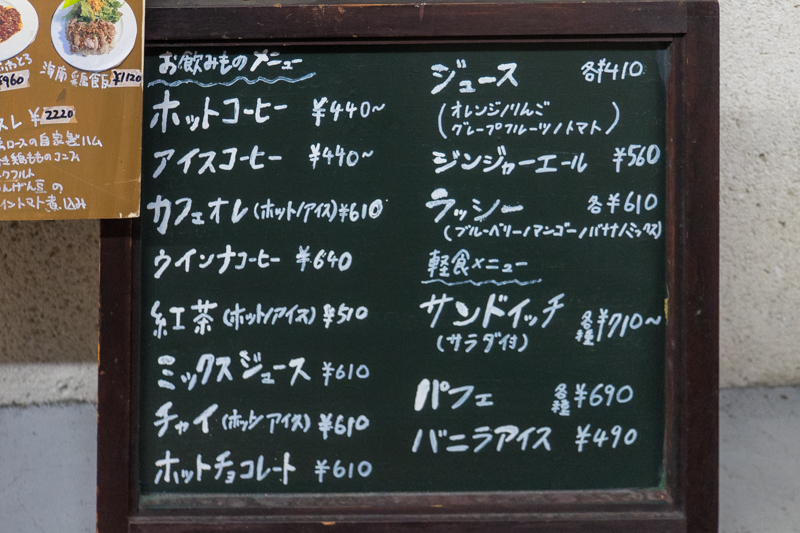 ¥960
海南鶏飯 ¥1120
¥2220
ロースの自家製ハム
鶏もものコンフィ
クフルト
んげん豆の
イントマト煮込み
お飲みものメニュー
ホットコーヒー ¥440~
アイスコーヒー ¥440~
カフェオレ(ホット/アイス)¥610
ウインナコーヒー ¥640
紅茶(ホット/アイス)¥510
ミックスジュース ¥610
チャイ(ホット/アイス)¥610
ホットチョコレート ¥610
ジュース 各¥410
(オレンジ/りんご
グレープフルーツ/トマト)
ジンジャーエール ¥560
ラッシー 各¥610
(ブルーベリー/マンゴー/バナナ/ミックス)
軽食メニュー
サンドイッチ 各種¥710~
(サラダ付)
パフェ 各種¥690
バニラアイス ¥490